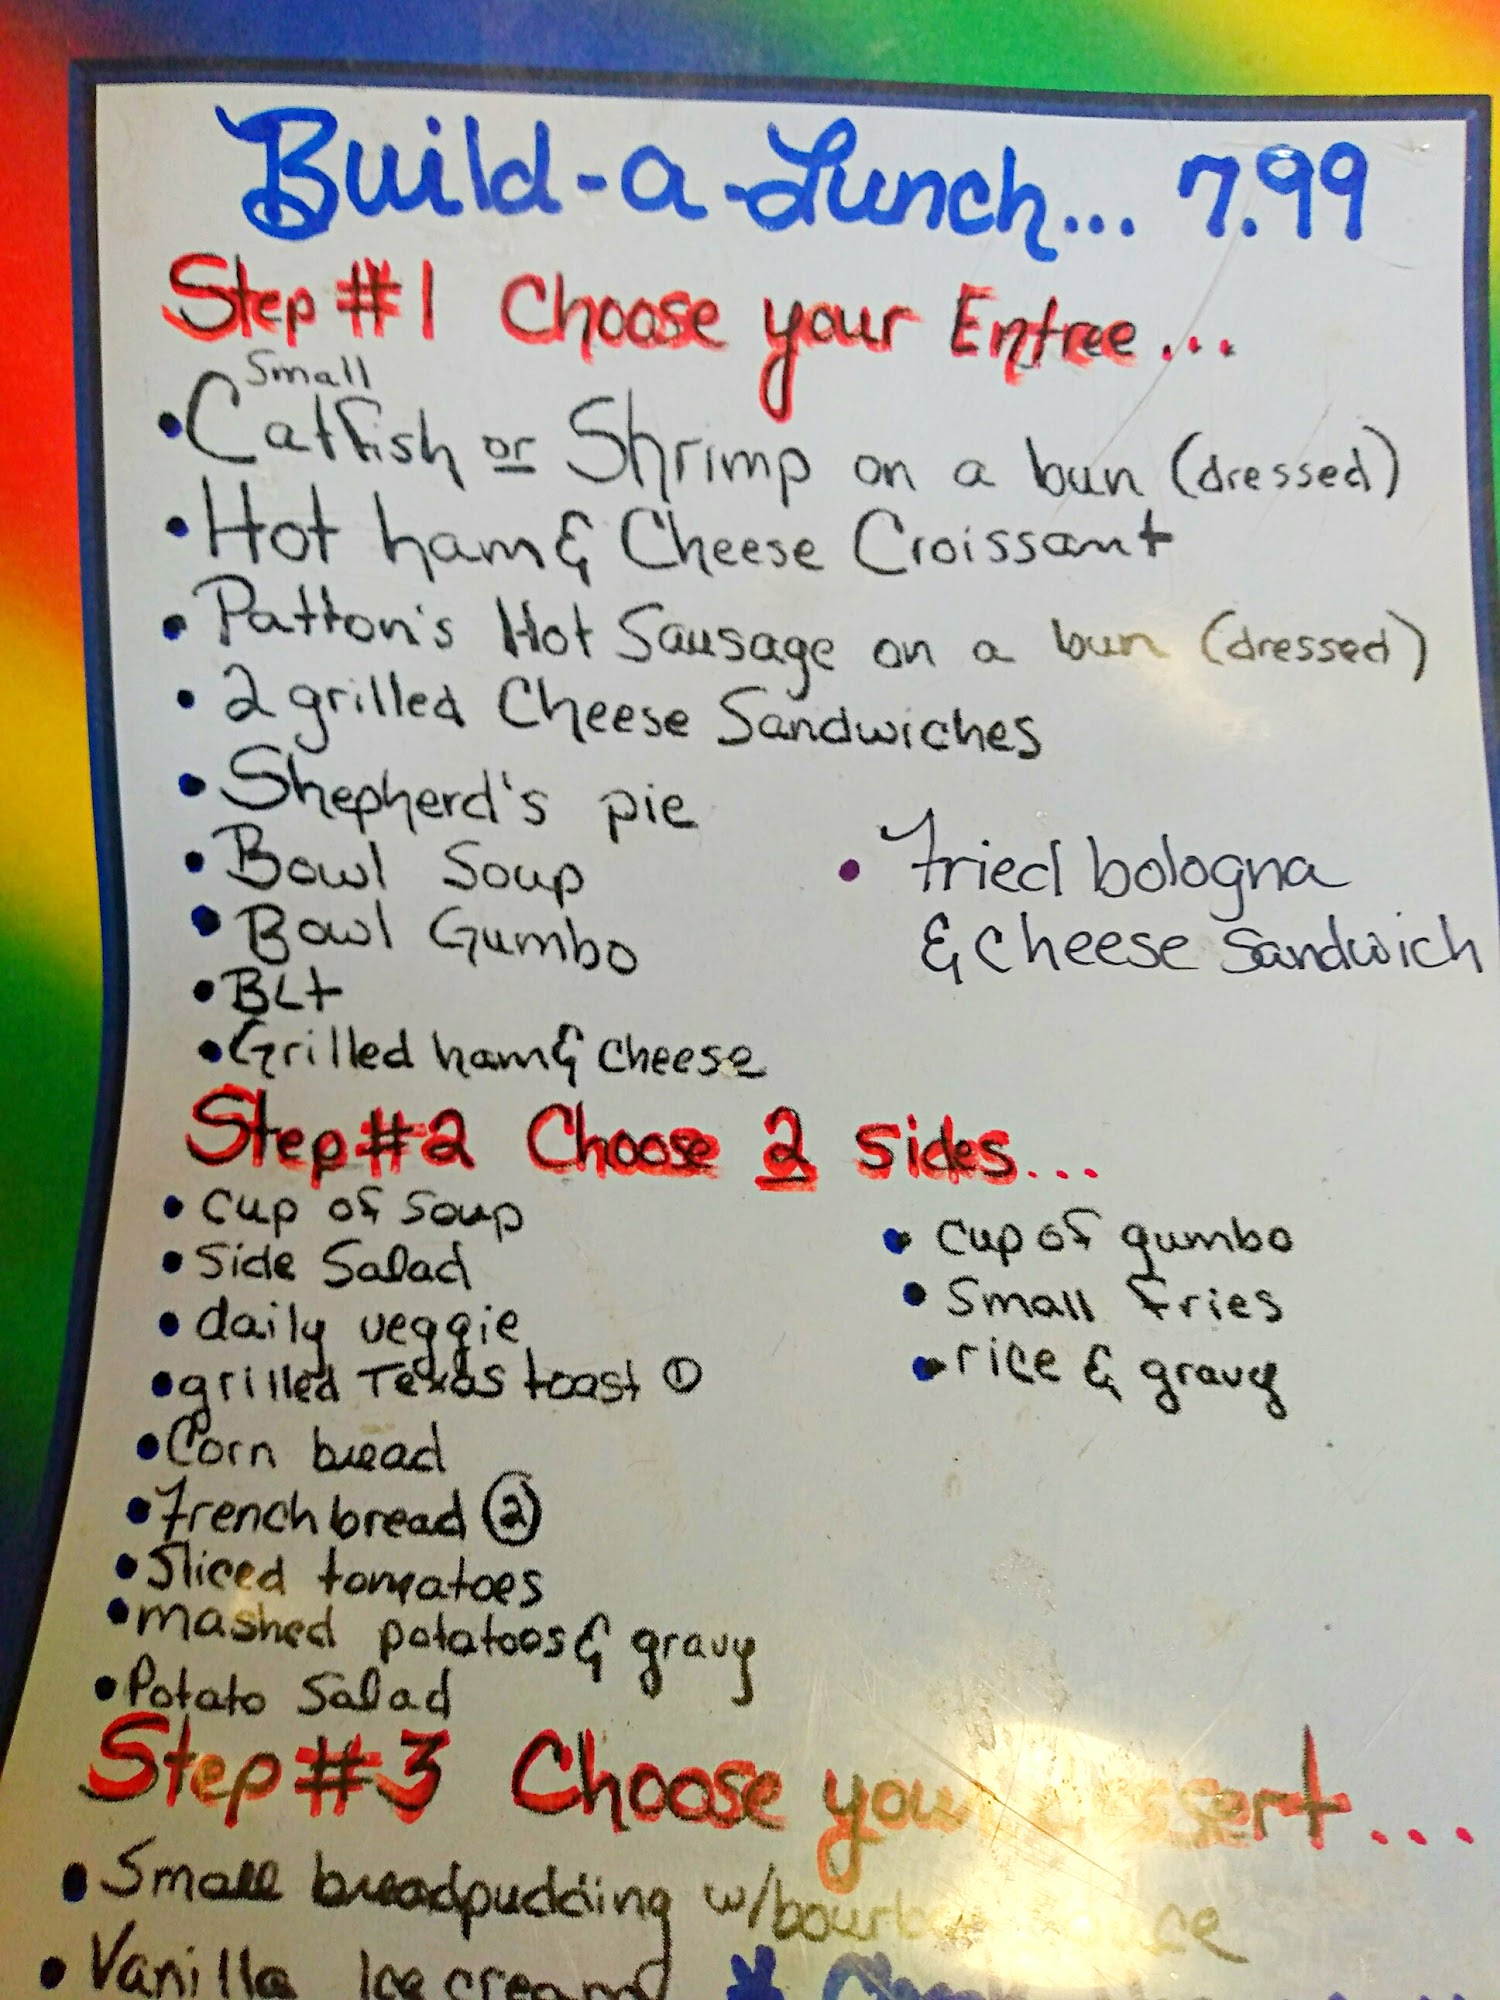 Build-a-Lunch... 7.99
Step #1 Choose your Entree...
Small
• Catfish or Shrimp on a bun (dressed)
• Hot ham & Cheese Croissant
• Patton's Hot Sausage on a bun (dressed)
• 2 grilled Cheese Sandwiches
• Shepherd's pie
• Bowl Soup
• Bowl Gumbo
• BLT
• Grilled ham & cheese
• Fried bologna
& cheese Sandwich
Step #2 Choose 2 sides...
• Cup of Soup
• Side Salad
• daily veggie
• grilled Texas toast ①
• Corn bread
• French bread ②
• Sliced tomatoes
• mashed potatoes & gravy
• Potato Salad
• Cup of gumbo
• Small fries
• rice & gravy
Step #3 Choose your dessert...
• Small breadpudding w/bourbon sauce
• Vanilla Ice cream *